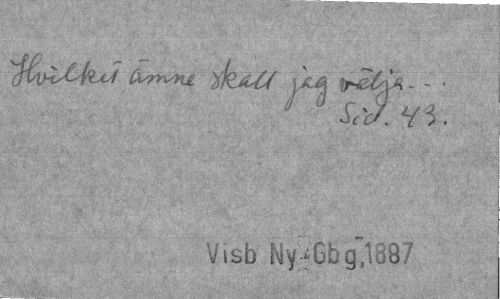 Hvilket ämne skall jag välja...
Sid. 43.
Visb Ny-Gbg, 1887